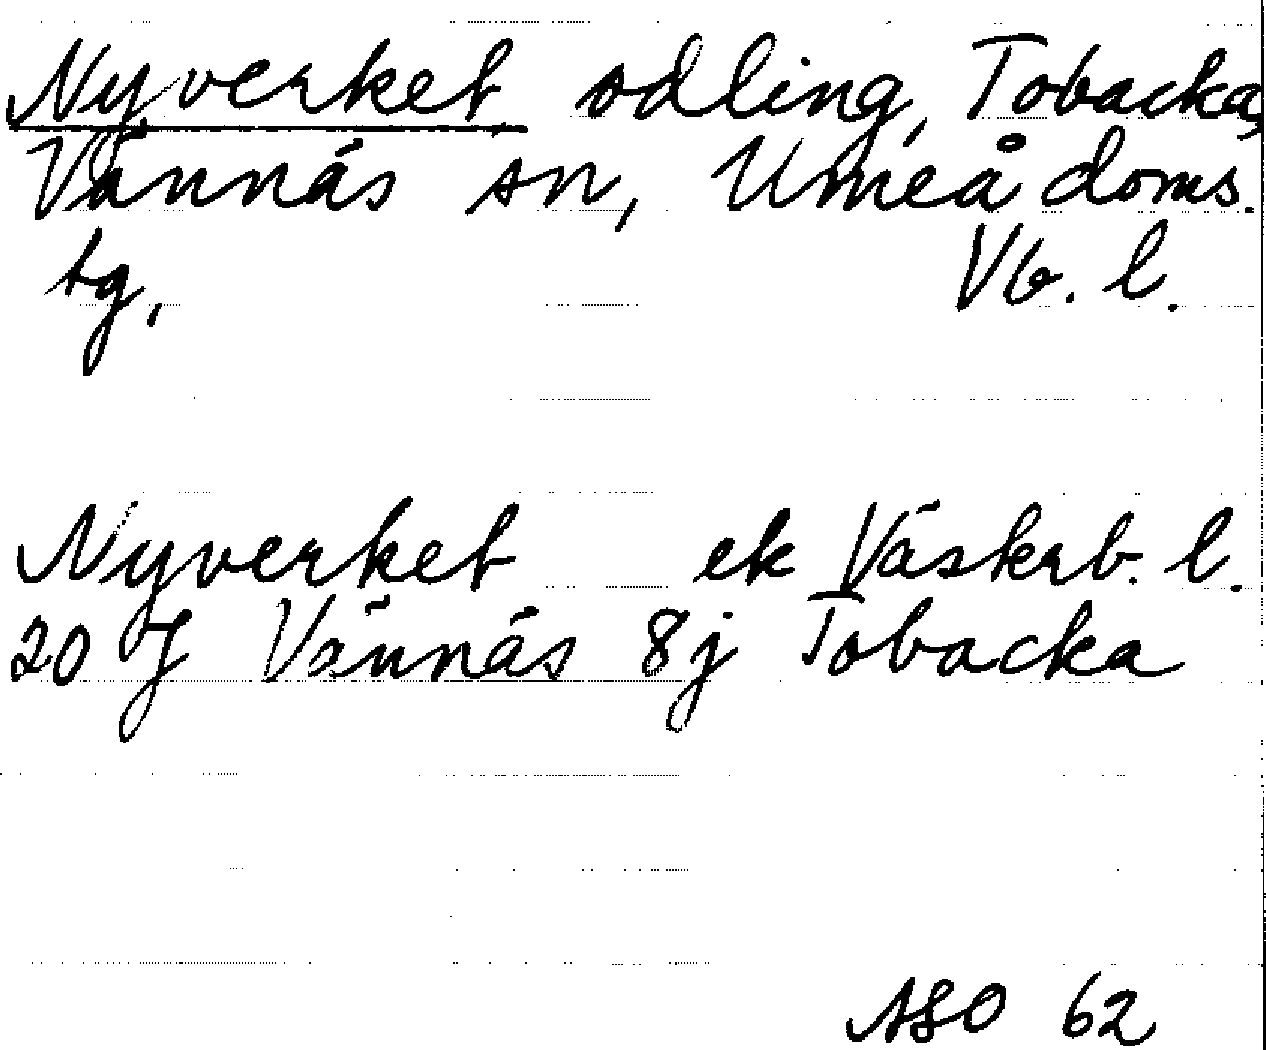 Nyverket, odling, Tobacka,
Vännäs sn, Umeå doms.
tg, Vb. l.
Nyverket ek Väskrb. l.
20 J Vännäs 8j Tobacka
ASO 62